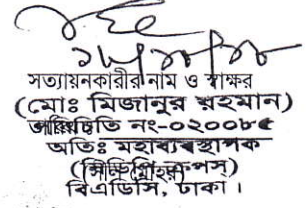 সত্যায়নকারীর নাম ও স্বাক্ষর
(মোঃ মিজানুর রহমান)
পরিচিতি নং-০২০০৮৫
অতিঃ মহাব্যবস্থাপক
বিএডিসি, ঢাকা।